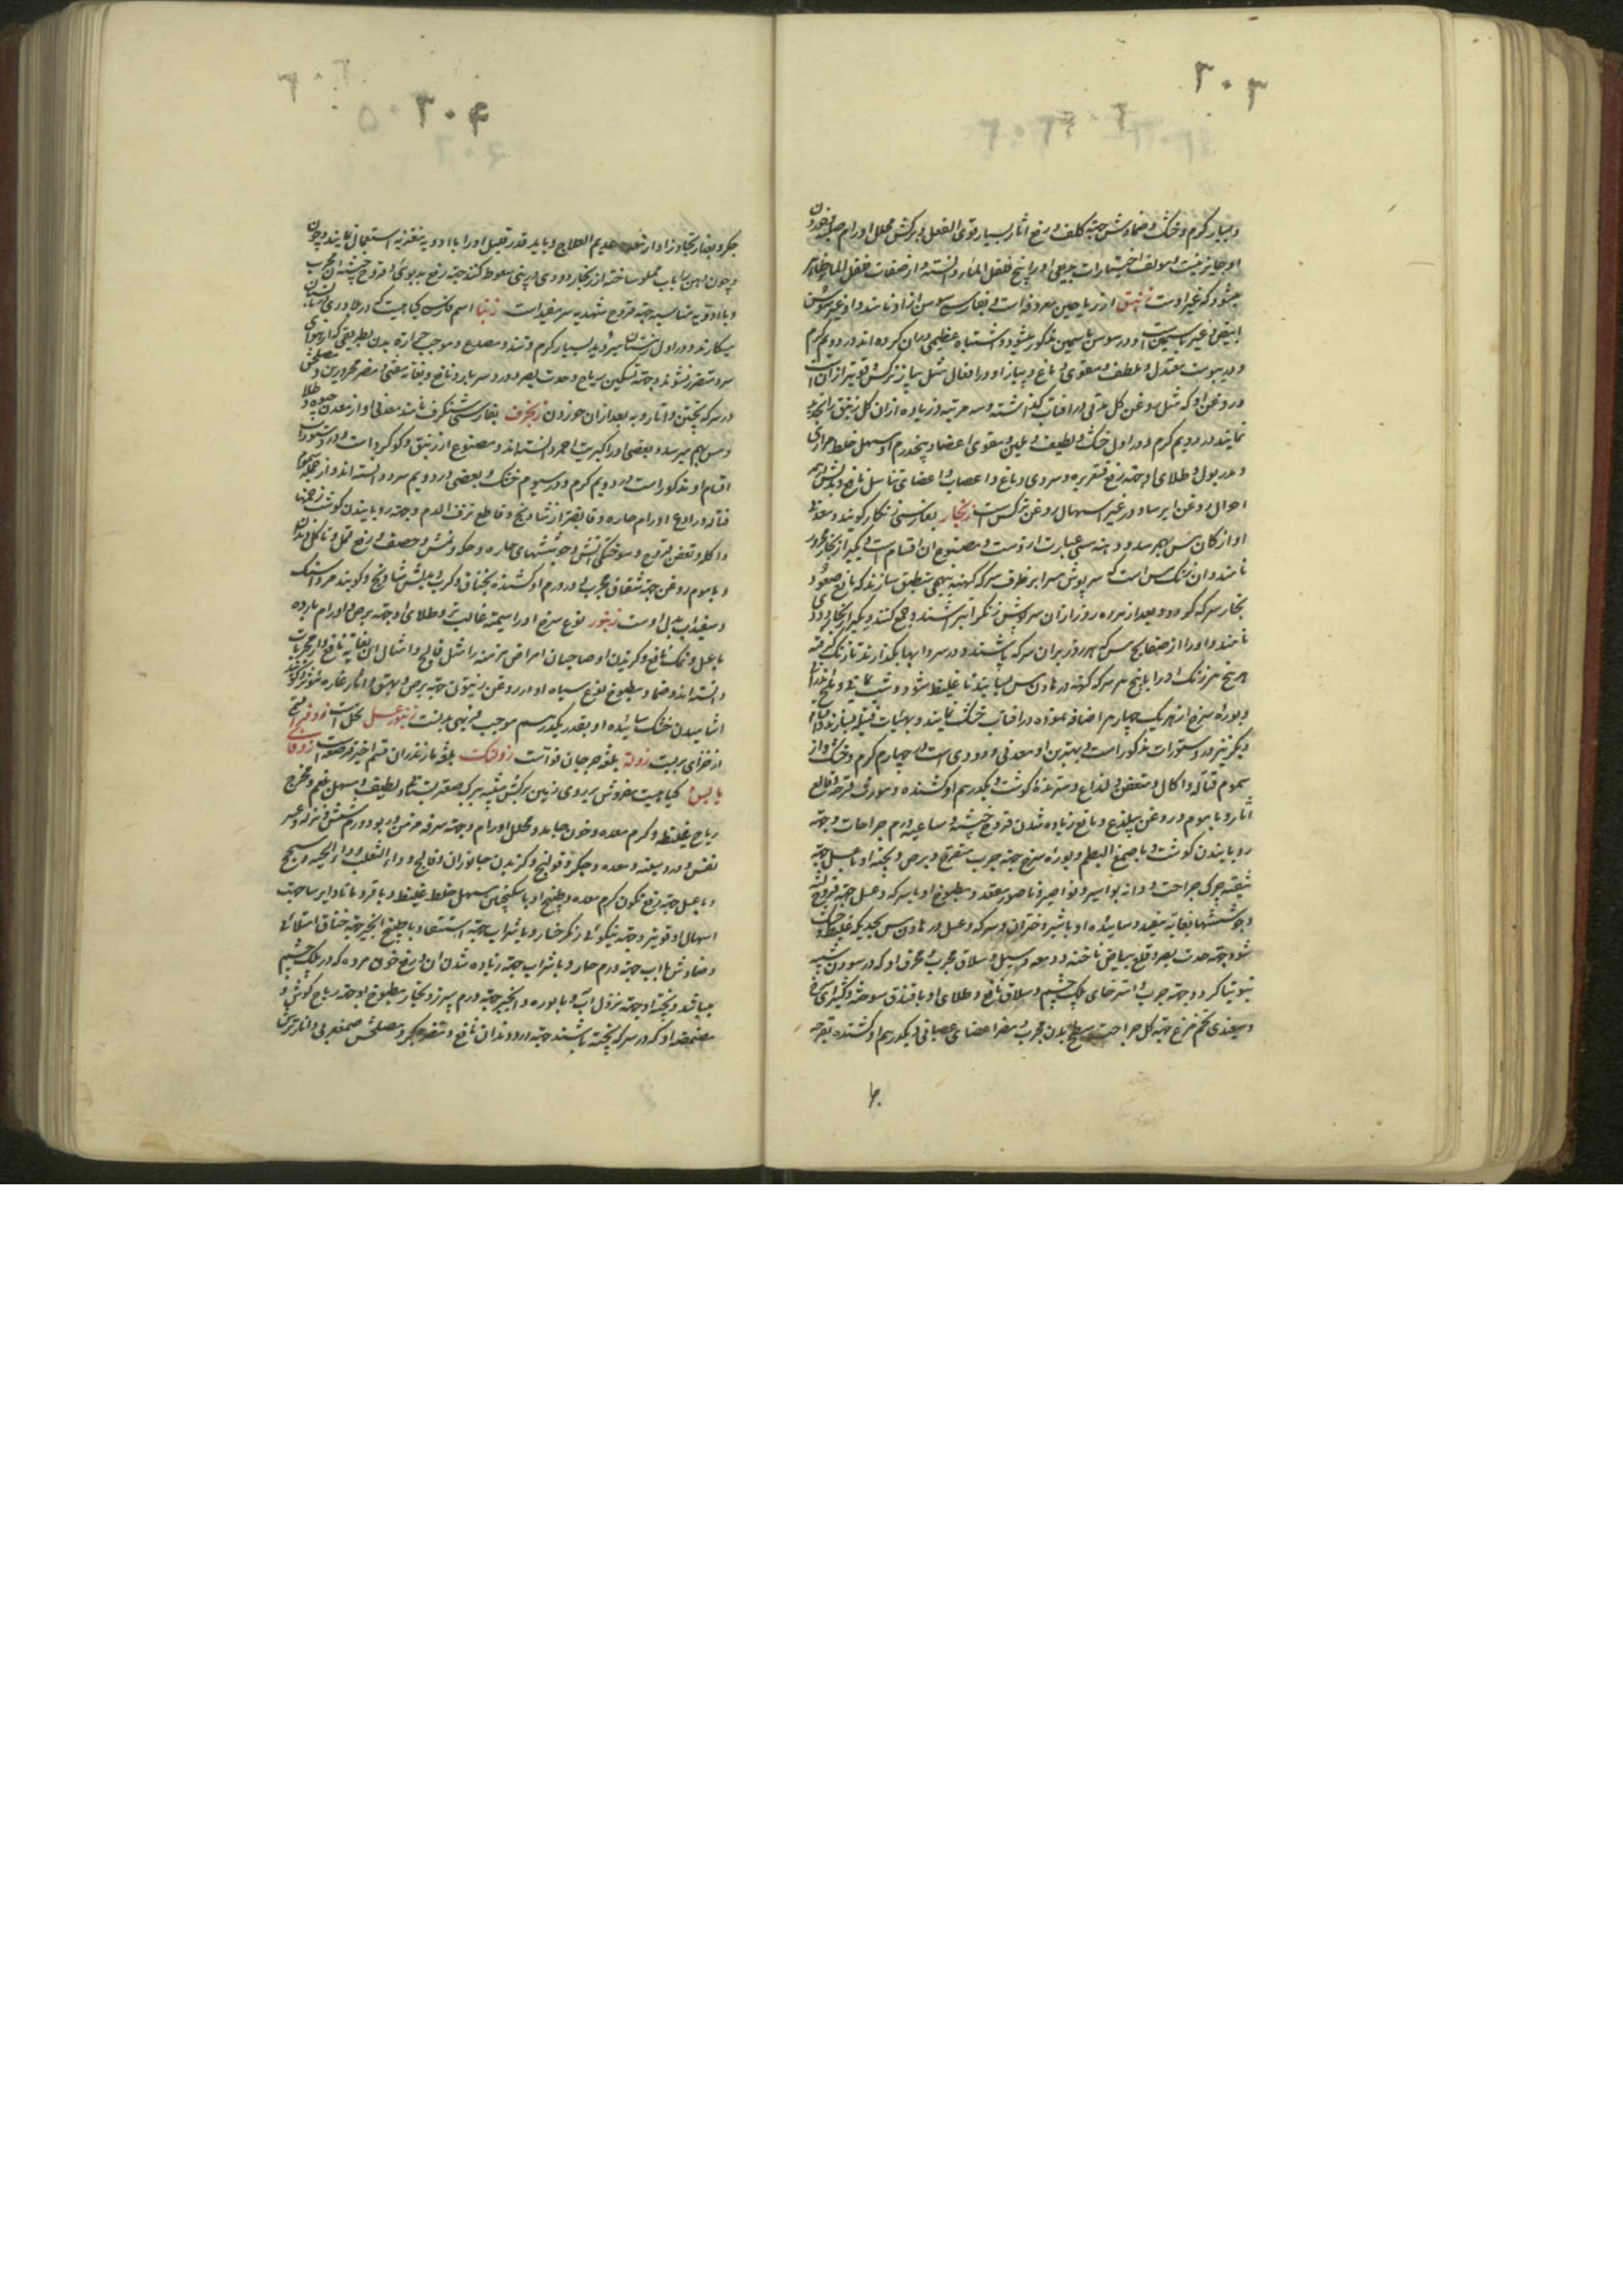 ۳۰۳
و بسیار گرم و خشک و ضمادش جهة کلف و رفع اثار بسیار قوی الفعل و برکش محلل اورام صلبه و خوردن
او جایز نیست و مولف اختیارات بدیعی او را بیخ فلفل الماء دانسته و از صفات فلفل الماء ظاهر
میشود که غیر اوست زنبق از ریاحین معروفه است و بفارسی سوسن ازاد نامند و او غیر سوسن
ابیض و غیر یاسمین است و در سوسن یاسمین مذکور میشود و اشتباه عظیمی در ان کرده‌اند در دویم گرم
و در یبوست معتدل و ملطف و مقوی دماغ و پیاز او در افعال مثل پیاز نرگس و قویتر از ان است
و روغن او که مثل روغن گل مرتبی در افتاب گذاشته و سه مرتبه و زیاده از ان گل زنبق را تجدید
نمایند در دویم گرم و در اول خشک و لطیف و ملین و مقوی اعضا و پنجدرم او مسهل خلط مراری
و مدر بول و طلای او جهة رفع قشعریره و سردی دماغ و اعصاب و اعضای تناسل نافع و بدلش در همه
احوال روغن ایرسا و در غیر اسهال روغن نرگس است زنجار بفارسی زنگار گویند و معدنی
او از کان مس بهم میرسد و دهنه مسی عبارت از وست و مصنوع ان اقسام است یکی را زنجار مجرود
نامند و ان زنگ مس است که سرپوش مس را بر ظرف سرکه کهنه بنهجی منطبق سازند که مانع صعود
بخار سرکه گردد و بعد از ده روز از ان سرپوش زنگ را تراشند و جمع کنند و یکی را زنجار دودی
نامند و او را از صفایح مس که هر روز بران سرکه پاشند و در سردابها بگذارند تا زنگ گیرد
و بوره سرخ از هر یک چهار اضافه نموده در افتاب خشک نمایند و بهیات فتیله سازند و اقسام
دیگر نیز در دستورات مذکور است و بهترین او معدنی و دودی است در چهارم گرم و خشک و از
سموم قتاله و اکال و متعفن و لذاع و مقرح گوشت و یکدرهم او کشنده و مورث قرحه و قالع
اثار و با موم و روغن بیلذع و مانع زیاده شدن قروح خبیثه و ساعیه و رم جراحات و جهة
رویانیدن گوشت و با صمغ البطم و بوره سرخ جهة جرب متقرح و برص و پخته او با عسل جهة
تنقیه چرک جراحت و دانه بواسیر و نواصیر و ناصور مقعد و مطبوخ او با سرکه و عسل جهة قروح لثه
و جوششها بغایة مفید و ساییده او با شیر دختران و سرکه و عسل در هاون مس بحدیکه غلیظ و خشک
شود جهة حدت بصر و قلع بیاض و ناخنه و دمعه و سبل و سلاق مجرب و محرق او که در سوزن شبیه
بتوتیا گردد جهة جرب و استرخای پلک چشم و سلاق نافع و طلای او با فندق سوخته و کتیرای سرخ
و سفیدی تخم مرغ جهة کل جراحت سطح بدن مجرب و مضر اعضای عصبانی و یکدرهم او کشنده بقرحه
۳۰۴
جگر و بعد از تجاوز او از معده عدیم العلاج و باید قدر قلیل او را با ادویه مغریه استعمال نمایند و چون
و با ادویه مناسبه جهة قروح شهدیه سر مفید است زنبا اسم فارسی گیاهیست که در بلاد ری
میکارند و در اول زمستان میروید بسیار گرم و تند و مصدع و موجب حرارت بدن بطریقی که از هوای
سرد متضرر نشوند و جهة تسکین ریاح و حدت بصر و درد سر بارد نافع و بغایة مغثی و مضر محرورین و مصلحش
در سرکه پختن و انار و به بعد از ان خوردن زنجفر بفارسی شنگرف نامند معدنی او از معدن جیوه و طلا
و مس بهم میرسد و بعضی او را کبریت احمر دانسته‌اند و مصنوع از زیبق و گوگرد است و در دستورات
اقسام او مذکور است در دویم گرم و در سیوم خشک و بعضی در دویم سرد دانسته‌اند و از جمله سموم
قتاله و رادع اورام حاره و قابض‌تر از شادنج و قاطع نزف الدم و جهة رویانیدن گوشت زخمها
و اکله و تعفن قروح و سوختگی اتش و جوششهای حاره و حکه و نمش و حصف و رفع قمل و تاکل دندان
و با موم روغن جهة شقاق مجرب و دو درم او کشنده بخناق و کرب و بدلش شادنج و گویند مرداسنگ
و سفیداب بدل اوست زنبور نوع سرخ او را سمیة غالب‌تر و طلای او جهة برص و اورام بارده
با عسل و نمک نافع و گزیدن او صاحبان امراض مزمنه را مثل فالج و امثال ان بغایة نافع و از مجربات
دانسته‌اند و ضماد مطبوخ نوع سیاه او در روغن زیتون جهة برص و بهق و اثار غایره موثر و گویند
اشامیدن خشک ساییده او بقدر یکدرهم موجب فربهی بدنست زنبور عسل نحل است زوفرا قسمی
از خزای بریست زوله بلغة جرجان فواست زولنک بلغة مازندران قسم اخیر قرصعنه است زوفای
یابس گیاهیست مفروش بر روی زمین برگش شبیه ببرگ صعتر بستانی و لطیف و مسهل بلغم و مخرج
ریاح غلیظه و گرم معده و خون جامد و محلل اورام و جهة سرفه مزمن و ربو و ورم شش و نزله و عسر
نفس و درد سینه و معده و جگر و قولنج و گزیدن جانوران و فالج و داء الثعلب و داء الحیه و سحج
و با عسل جهة دفع تکون کرم معده و طبیخ او با سکنجبین مسهل خلط غلیظ و با قردمانا و ایرسا جهة
اسهال او قویتر و جهة نیکوئی رنگ رخسار و با شراب جهة استسقاء و با طبیخ انجیر جهة خناق امتلائی
و ضمادش با اب جهة ورم حار و با شراب جهة زیاده شدن ان و رفع خون مرده که در پلک چشم
میباشد و پخته او جهة نزول آب و با بوره و انجیر جهة ورم سپرز و بخار مطبوخ او جهة ریاح گوش و
مضمضه او که در سرکه پخته باشند جهة درد دندان نافع و مضر جگر و مصلحش صمغ عربی و انار ترش